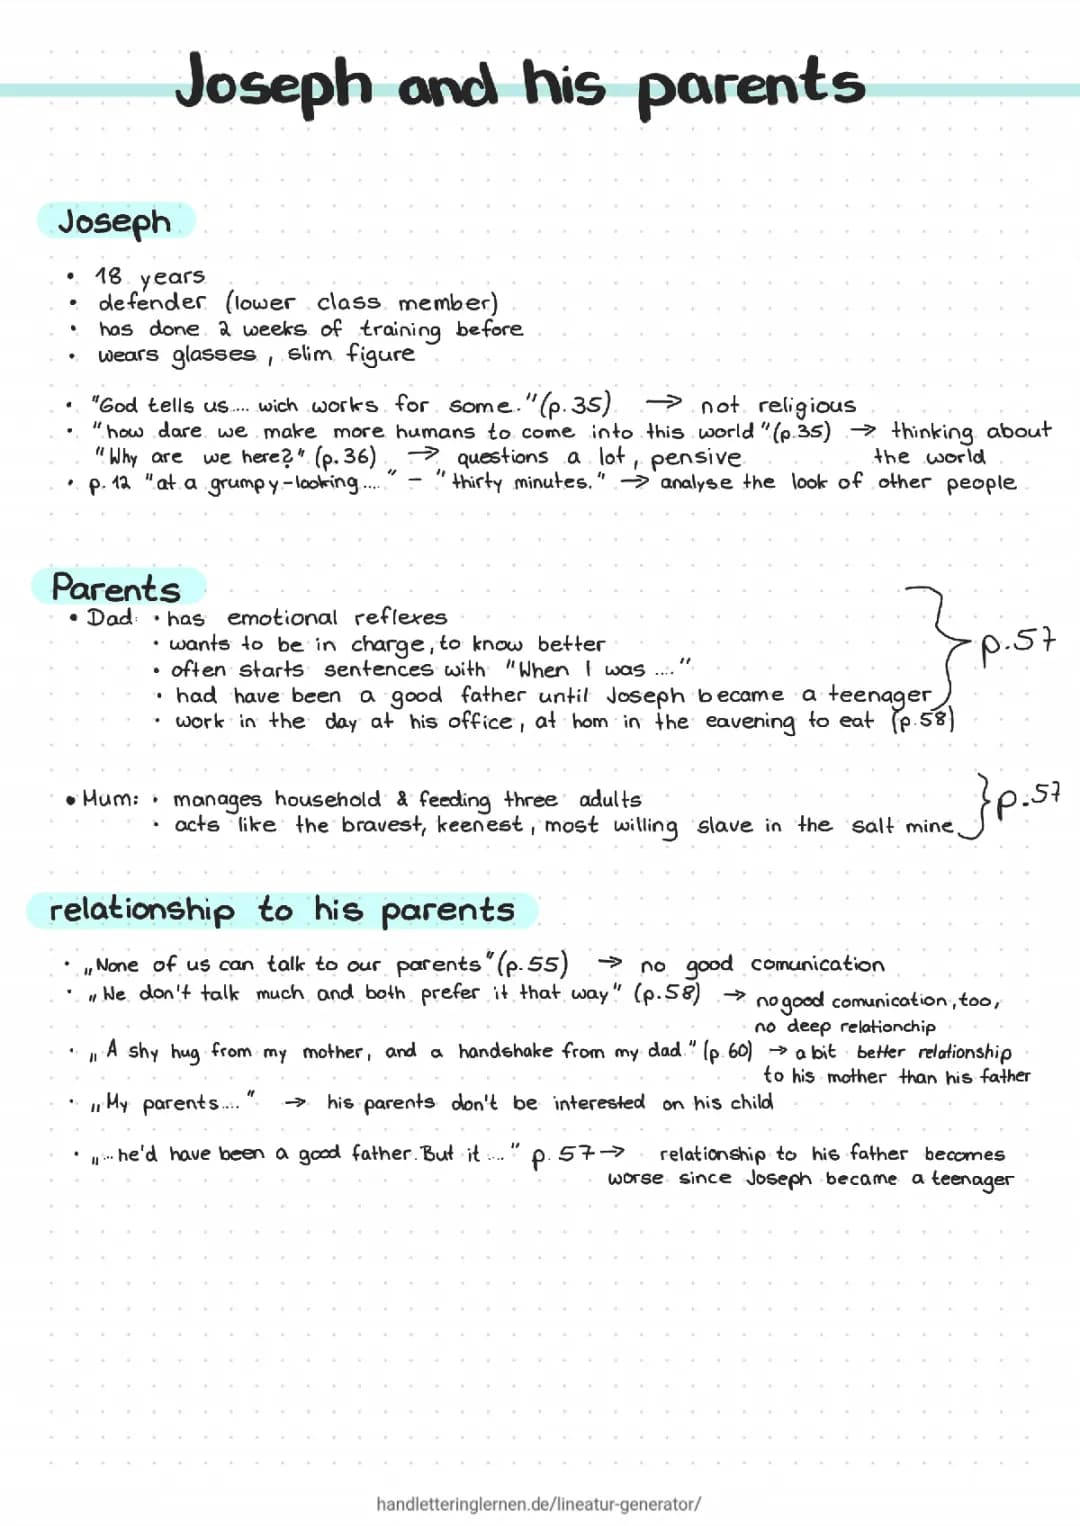 Joseph and his parents
Joseph
• 18 years
• defender (lower class member)
• has done 2 weeks of training before
• wears glasses, slim figure
• "God tells us.... wich works for some." (p.35) → not religious
• "how dare we make more humans to come into this world" (p.35) → thinking about
the world
"Why are we here?" (p.36) → questions a lot, pensive
• p. 12 "at a grumpy-looking...." - "thirty minutes." → analyse the look of other people
Parents
• Dad: • has emotional reflexes
• wants to be in charge, to know better
• often starts sentences with "When I was ...."
• had have been a good father until Joseph became a teenager
} p.57
• work in the day at his office, at hom in the eavening to eat (p.58)
• Mum: • manages household & feeding three adults
• acts like the bravest, keenest, most willing slave in the salt mine
} p.57
relationship to his parents
• „None of us can talk to our parents" (p.55) → no good comunication
• „We don't talk much and both prefer it that way" (p.58) → no good comunication, too,
no deep relationchip
• „A shy hug from my mother, and a handshake from my dad." (p.60) → a bit better relationship
to his mother than his father
• „My parents...." → his parents don't be interested on his child
• „... he'd have been a good father. But it ...." p. 57 → relationship to his father becomes
worse since Joseph became a teenager
handletteringlernen.de/lineatur-generator/